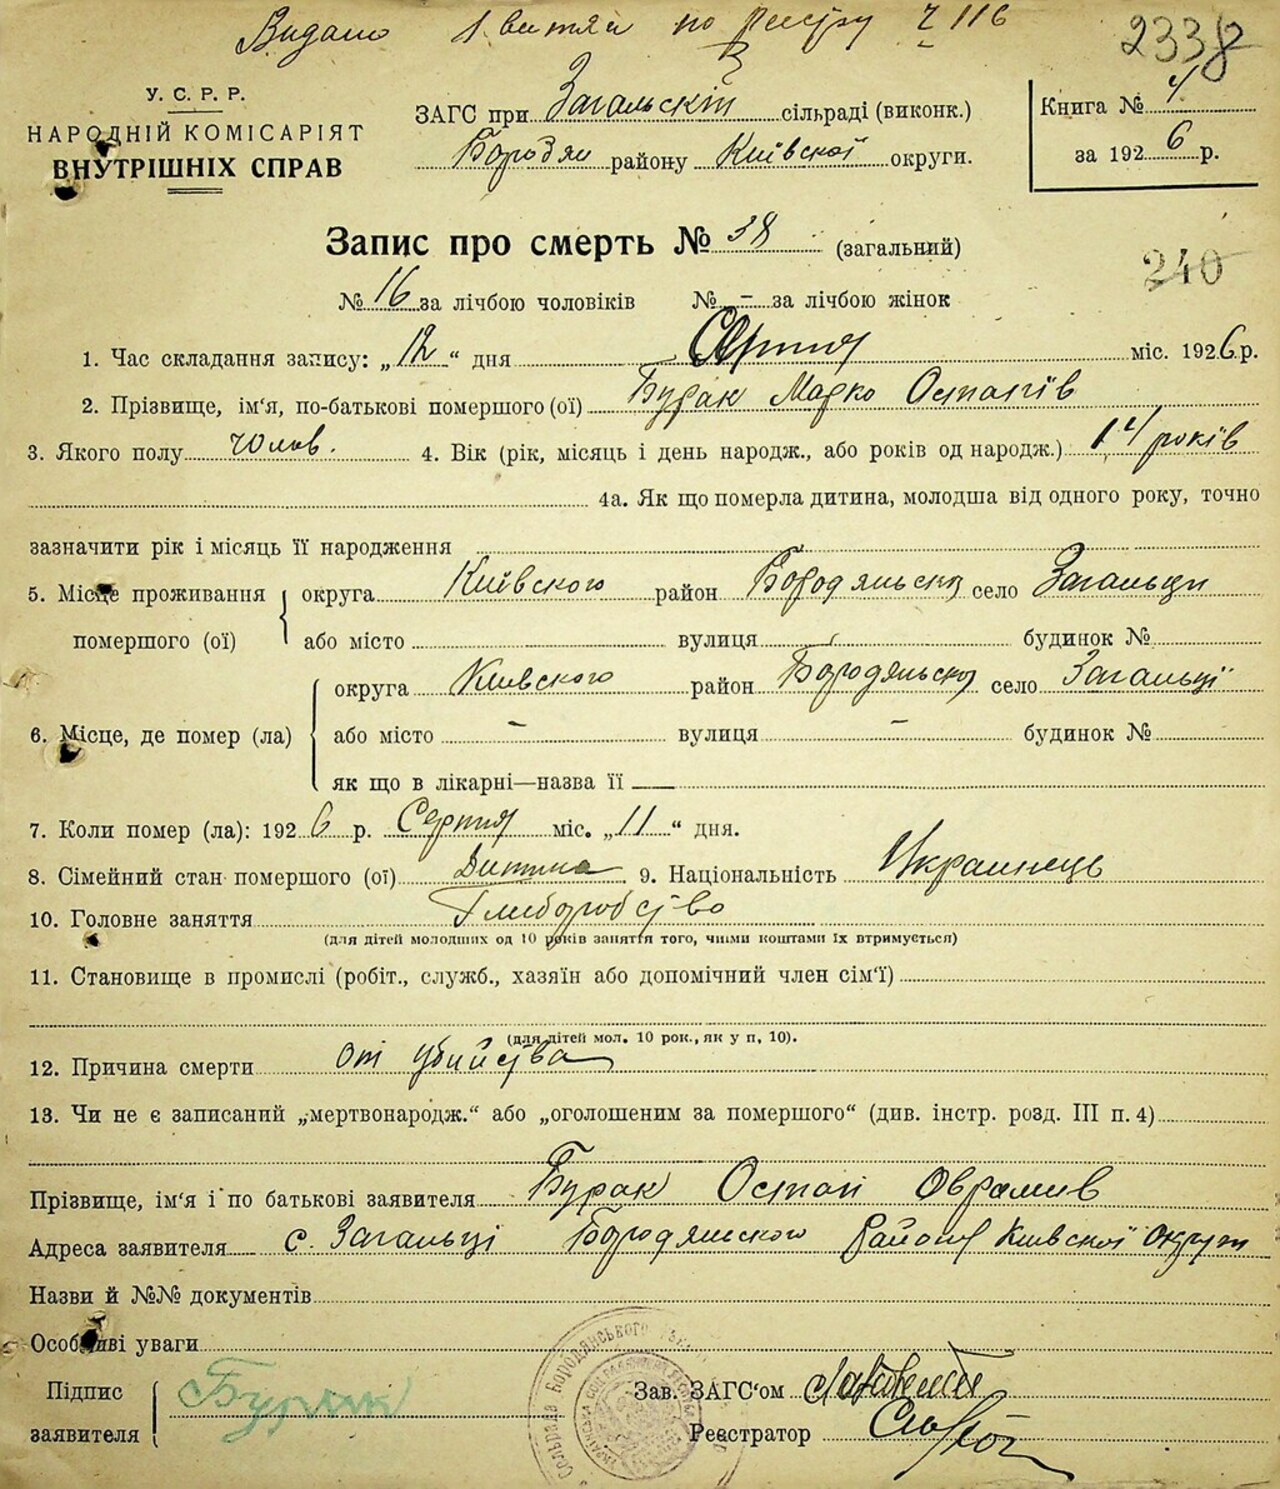 Видано 1 витяг по реєстру № 116
2338
У. С. Р. Р.
НАРОДНІЙ КОМІСАРІЯТ
ВНУТРІШНІХ СПРАВ
ЗАГС при Загальскій сільраді (виконк.)
Бородян району Київскої округи.
Книга № 4
за 1926 р.
Запис про смерть № 38 (загальний)
240
№ 16 за лічбою чоловіків № - за лічбою жінок
1. Час складання запису: „12“ дня Серпня міс. 1926 р.
2. Прізвище, ім'я, по-батькові помершого (ої) Бурак Марко Остапів
3. Якого полу чолов. 4. Вік (рік, місяць і день народж., або років од народж.) 14 років
4а. Як що померла дитина, молодша від одного року, точно
зазначити рік і місяць її народження
5. Місце проживання помершого (ої) округа Київского район Бородяльско село Загальци
або місто вулиця будинок №
6. Місце, де помер (ла) округа Киевского район Бородяльско село Загальці
або місто - вулиця - будинок №
як що в лікарні—назва її —
7. Коли помер (ла): 1926 р. Серпня міс. „11“ дня.
8. Сімейний стан помершого (ої) Дитина 9. Національність Украинець
10. Головне заняття Хлиборобство
(для дітей молодших од 10 років заняття того, чиїми коштами їх втримується)
11. Становище в промислі (робіт., служб., хазяїн або допомічний член сім'ї)
(для дітей мол. 10 рок., як у п, 10).
12. Причина смерти от убийства
13. Чи не є записаний „мертвонародж.“ або „оголошеним за помершого“ (див. інстр. розд. III п. 4)
Прізвище, ім'я і по батькові заявителя Бурак Остап Оврамив
Адреса заявителя с. Загальці Бородянского Району Киевскої округи
Назви й №№ документів
Особливі уваги
Підпис заявителя Бурак
Зав. ЗАГС'ом
Реєстратор